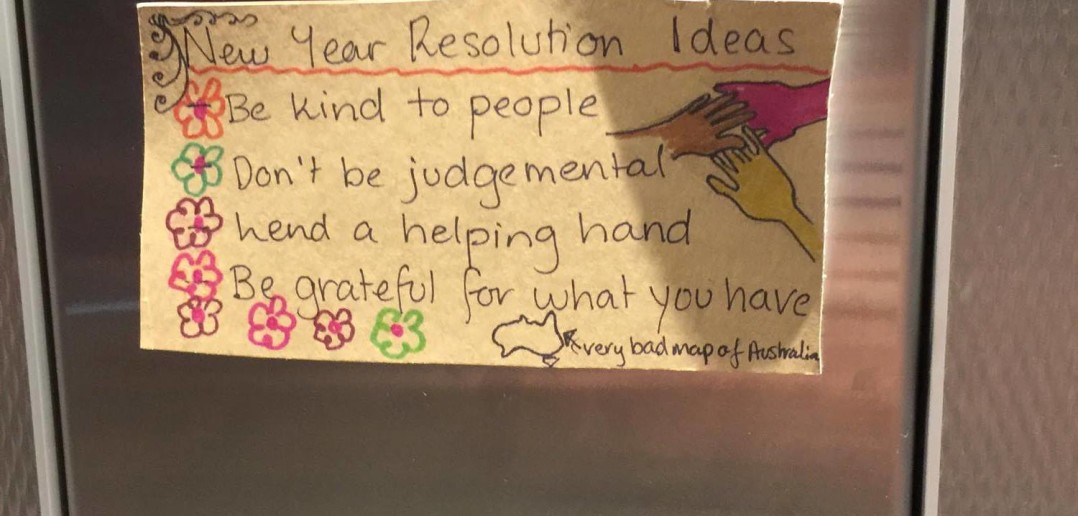 New Year Resolution Ideas
Be kind to people
Don't be judgemental
hend a helping hand
Be grateful for what you have
very bad map of Australia